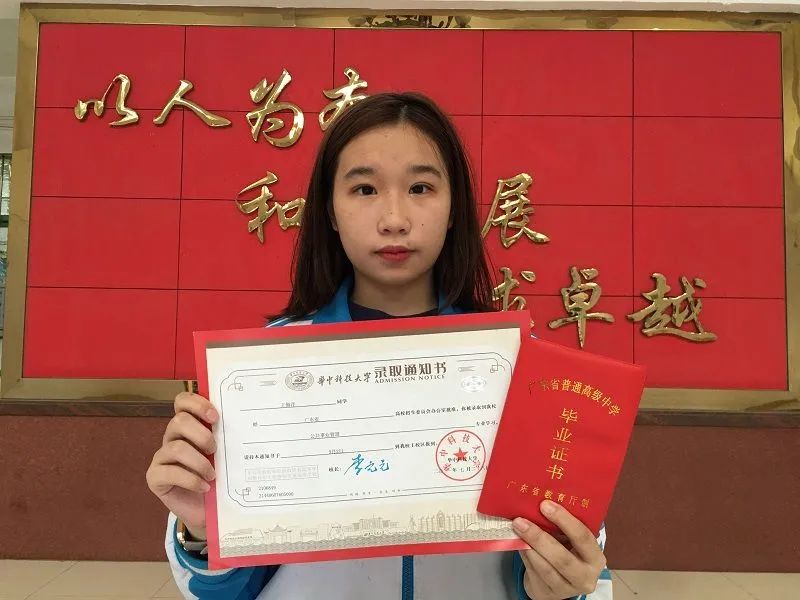 以人为本
和 展
求卓越
华中科技大学 录取通知书
ADMISSION NOTICE
同学
经 广东省 高校招生委员会办公室批准，你被录取到我校
公共事业管理 专业学习。
请持本通知书于 到我校主校区报到
校长：李元元
华中科技大学
广东省普通高级中学
毕业证书
广东省教育厅制